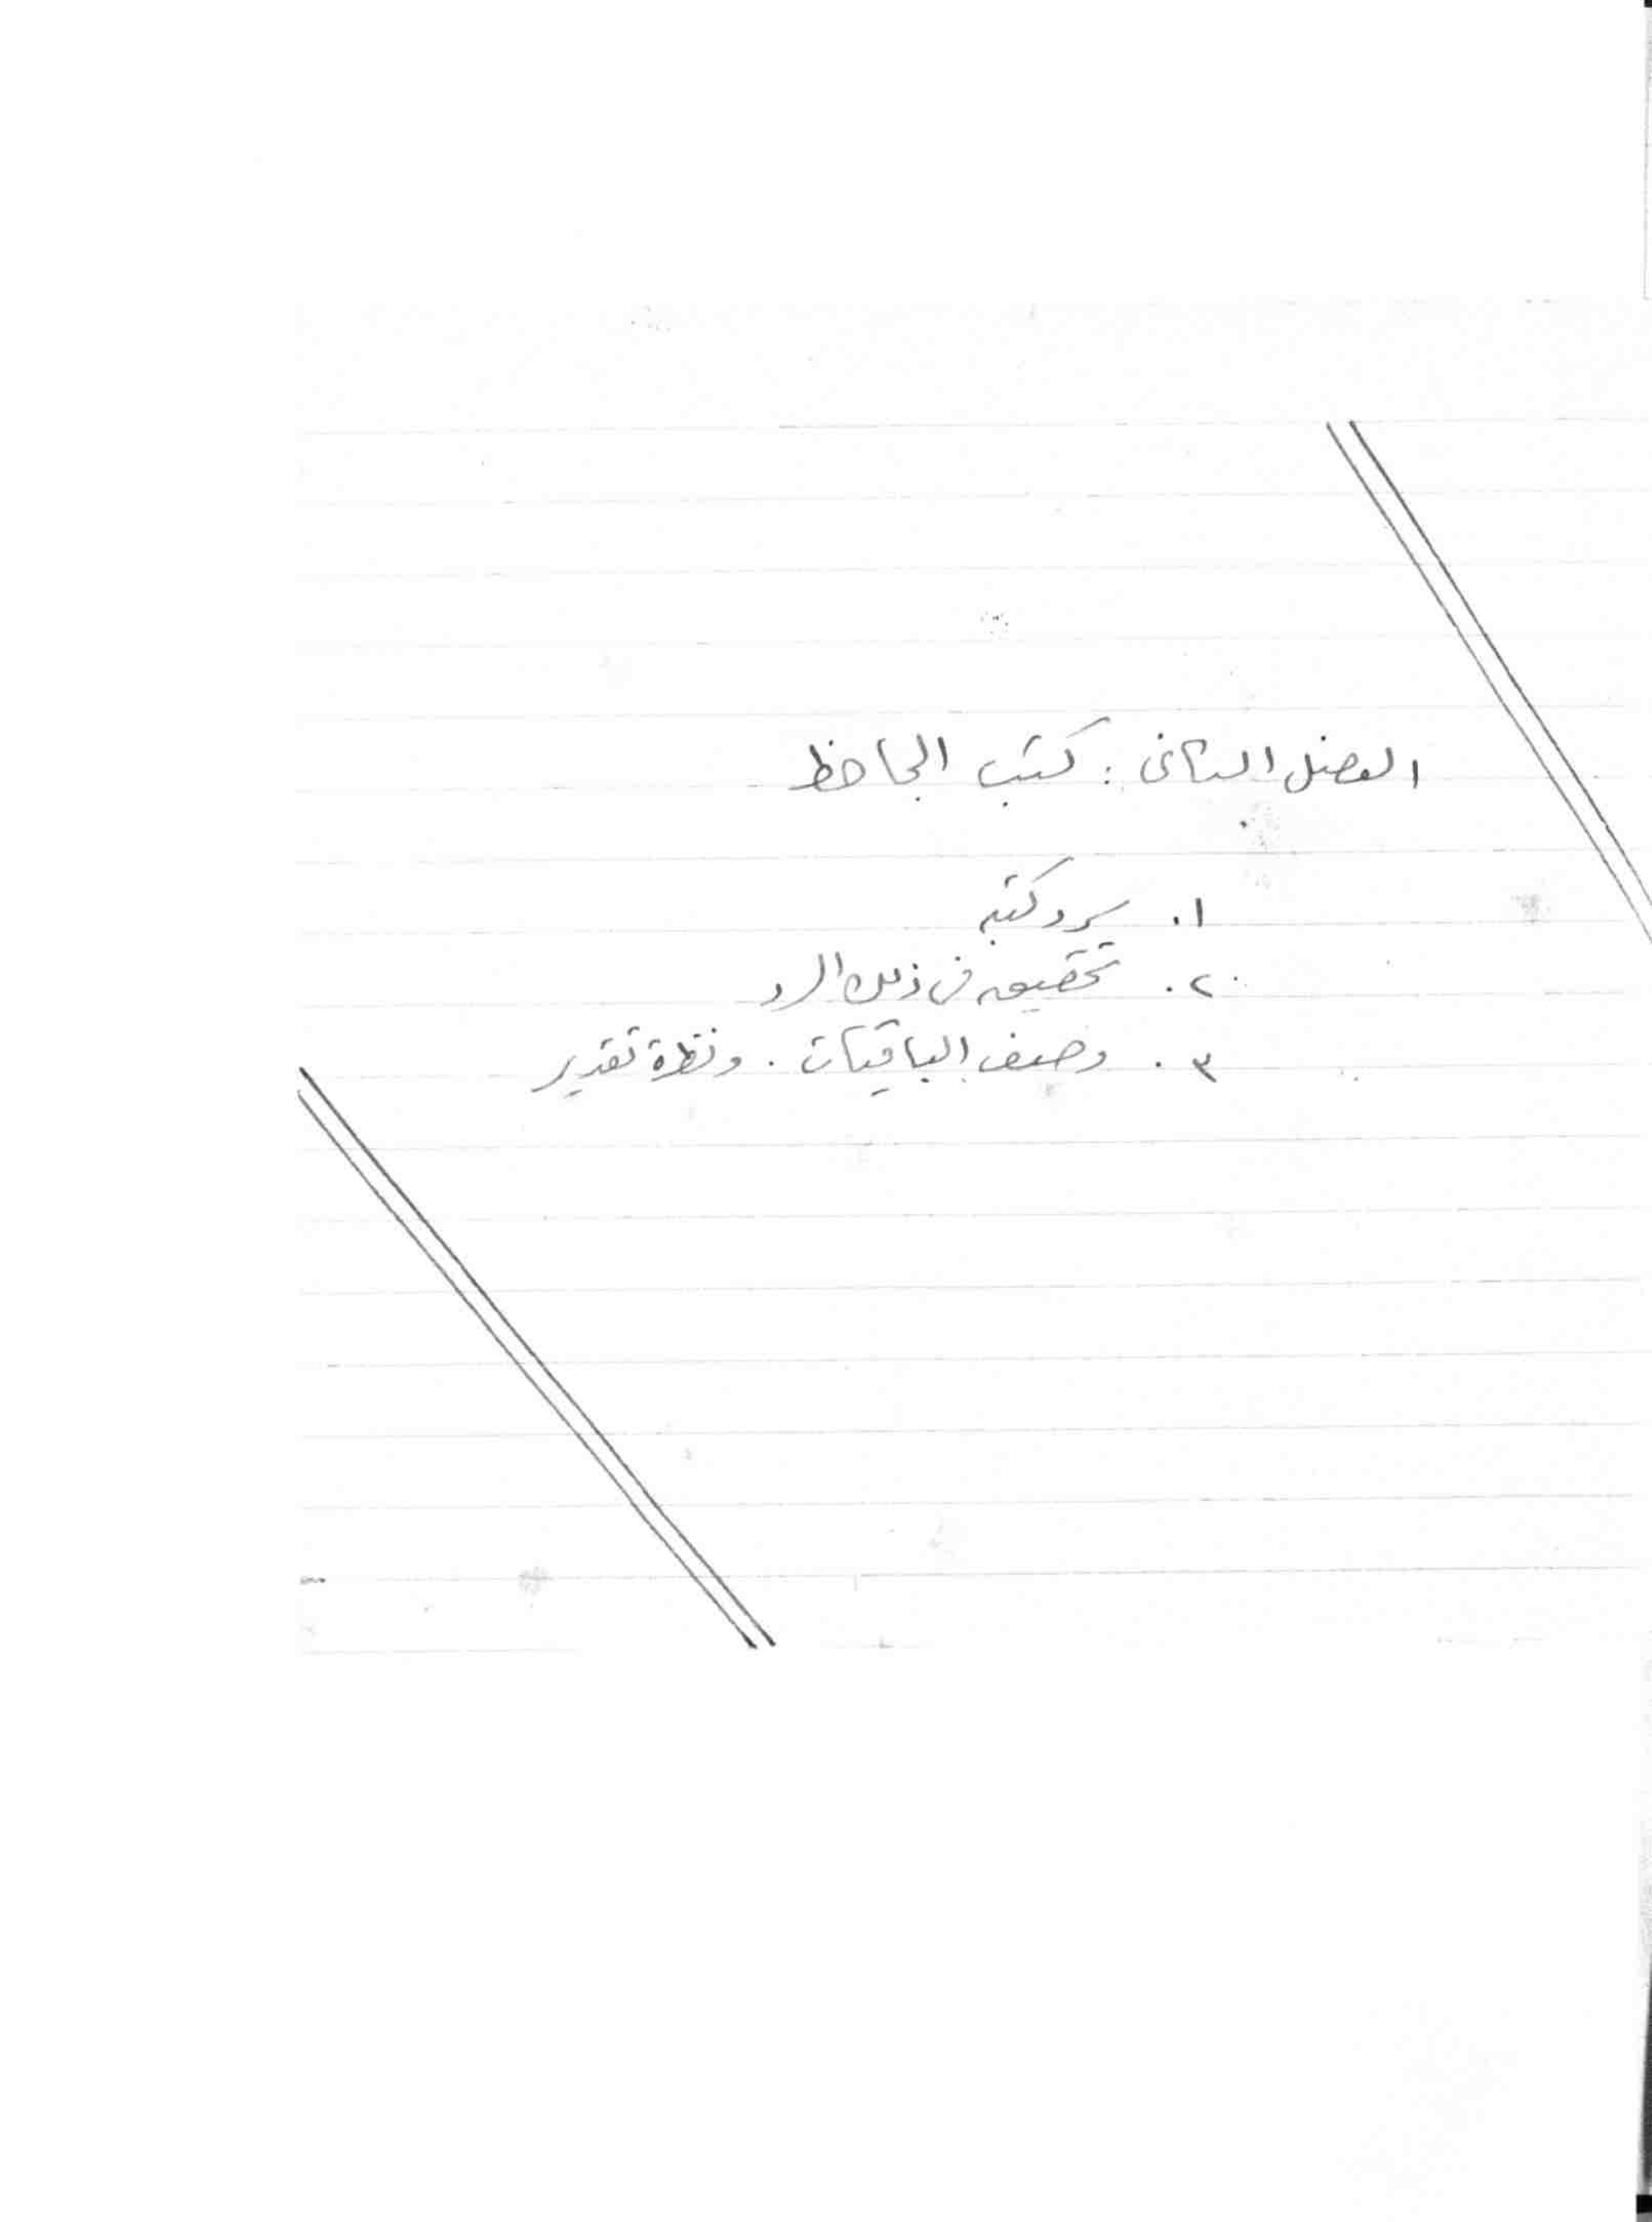 الفصل الثانى : كتب الجاحظ
١. سرد كتبه
٢. تحقيق فى ذلك السرد
٣. وصف الباقيات . ونظرة تقدير